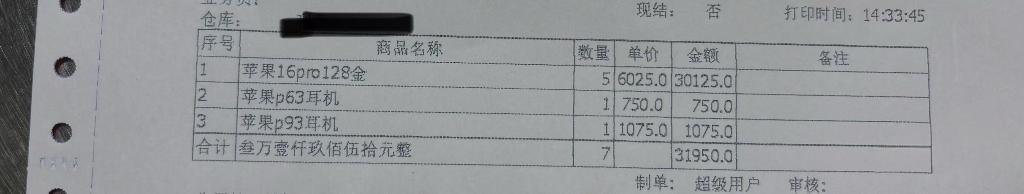 仓库:
现结: 否 打印时间: 14:33:45
序号 商品名称 数量 单价 金额 备注
1 苹果16pro128金 5 6025.0 30125.0
2 苹果p63耳机 1 750.0 750.0
3 苹果p93耳机 1 1075.0 1075.0
合计 叁万壹仟玖佰伍拾元整 7 31950.0
制单: 超级用户 审核: